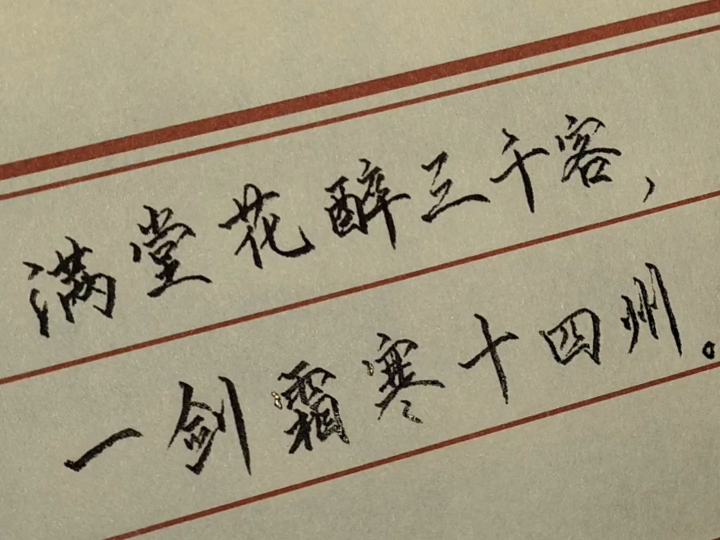 满堂花醉三千客，
一剑霜寒十四州。